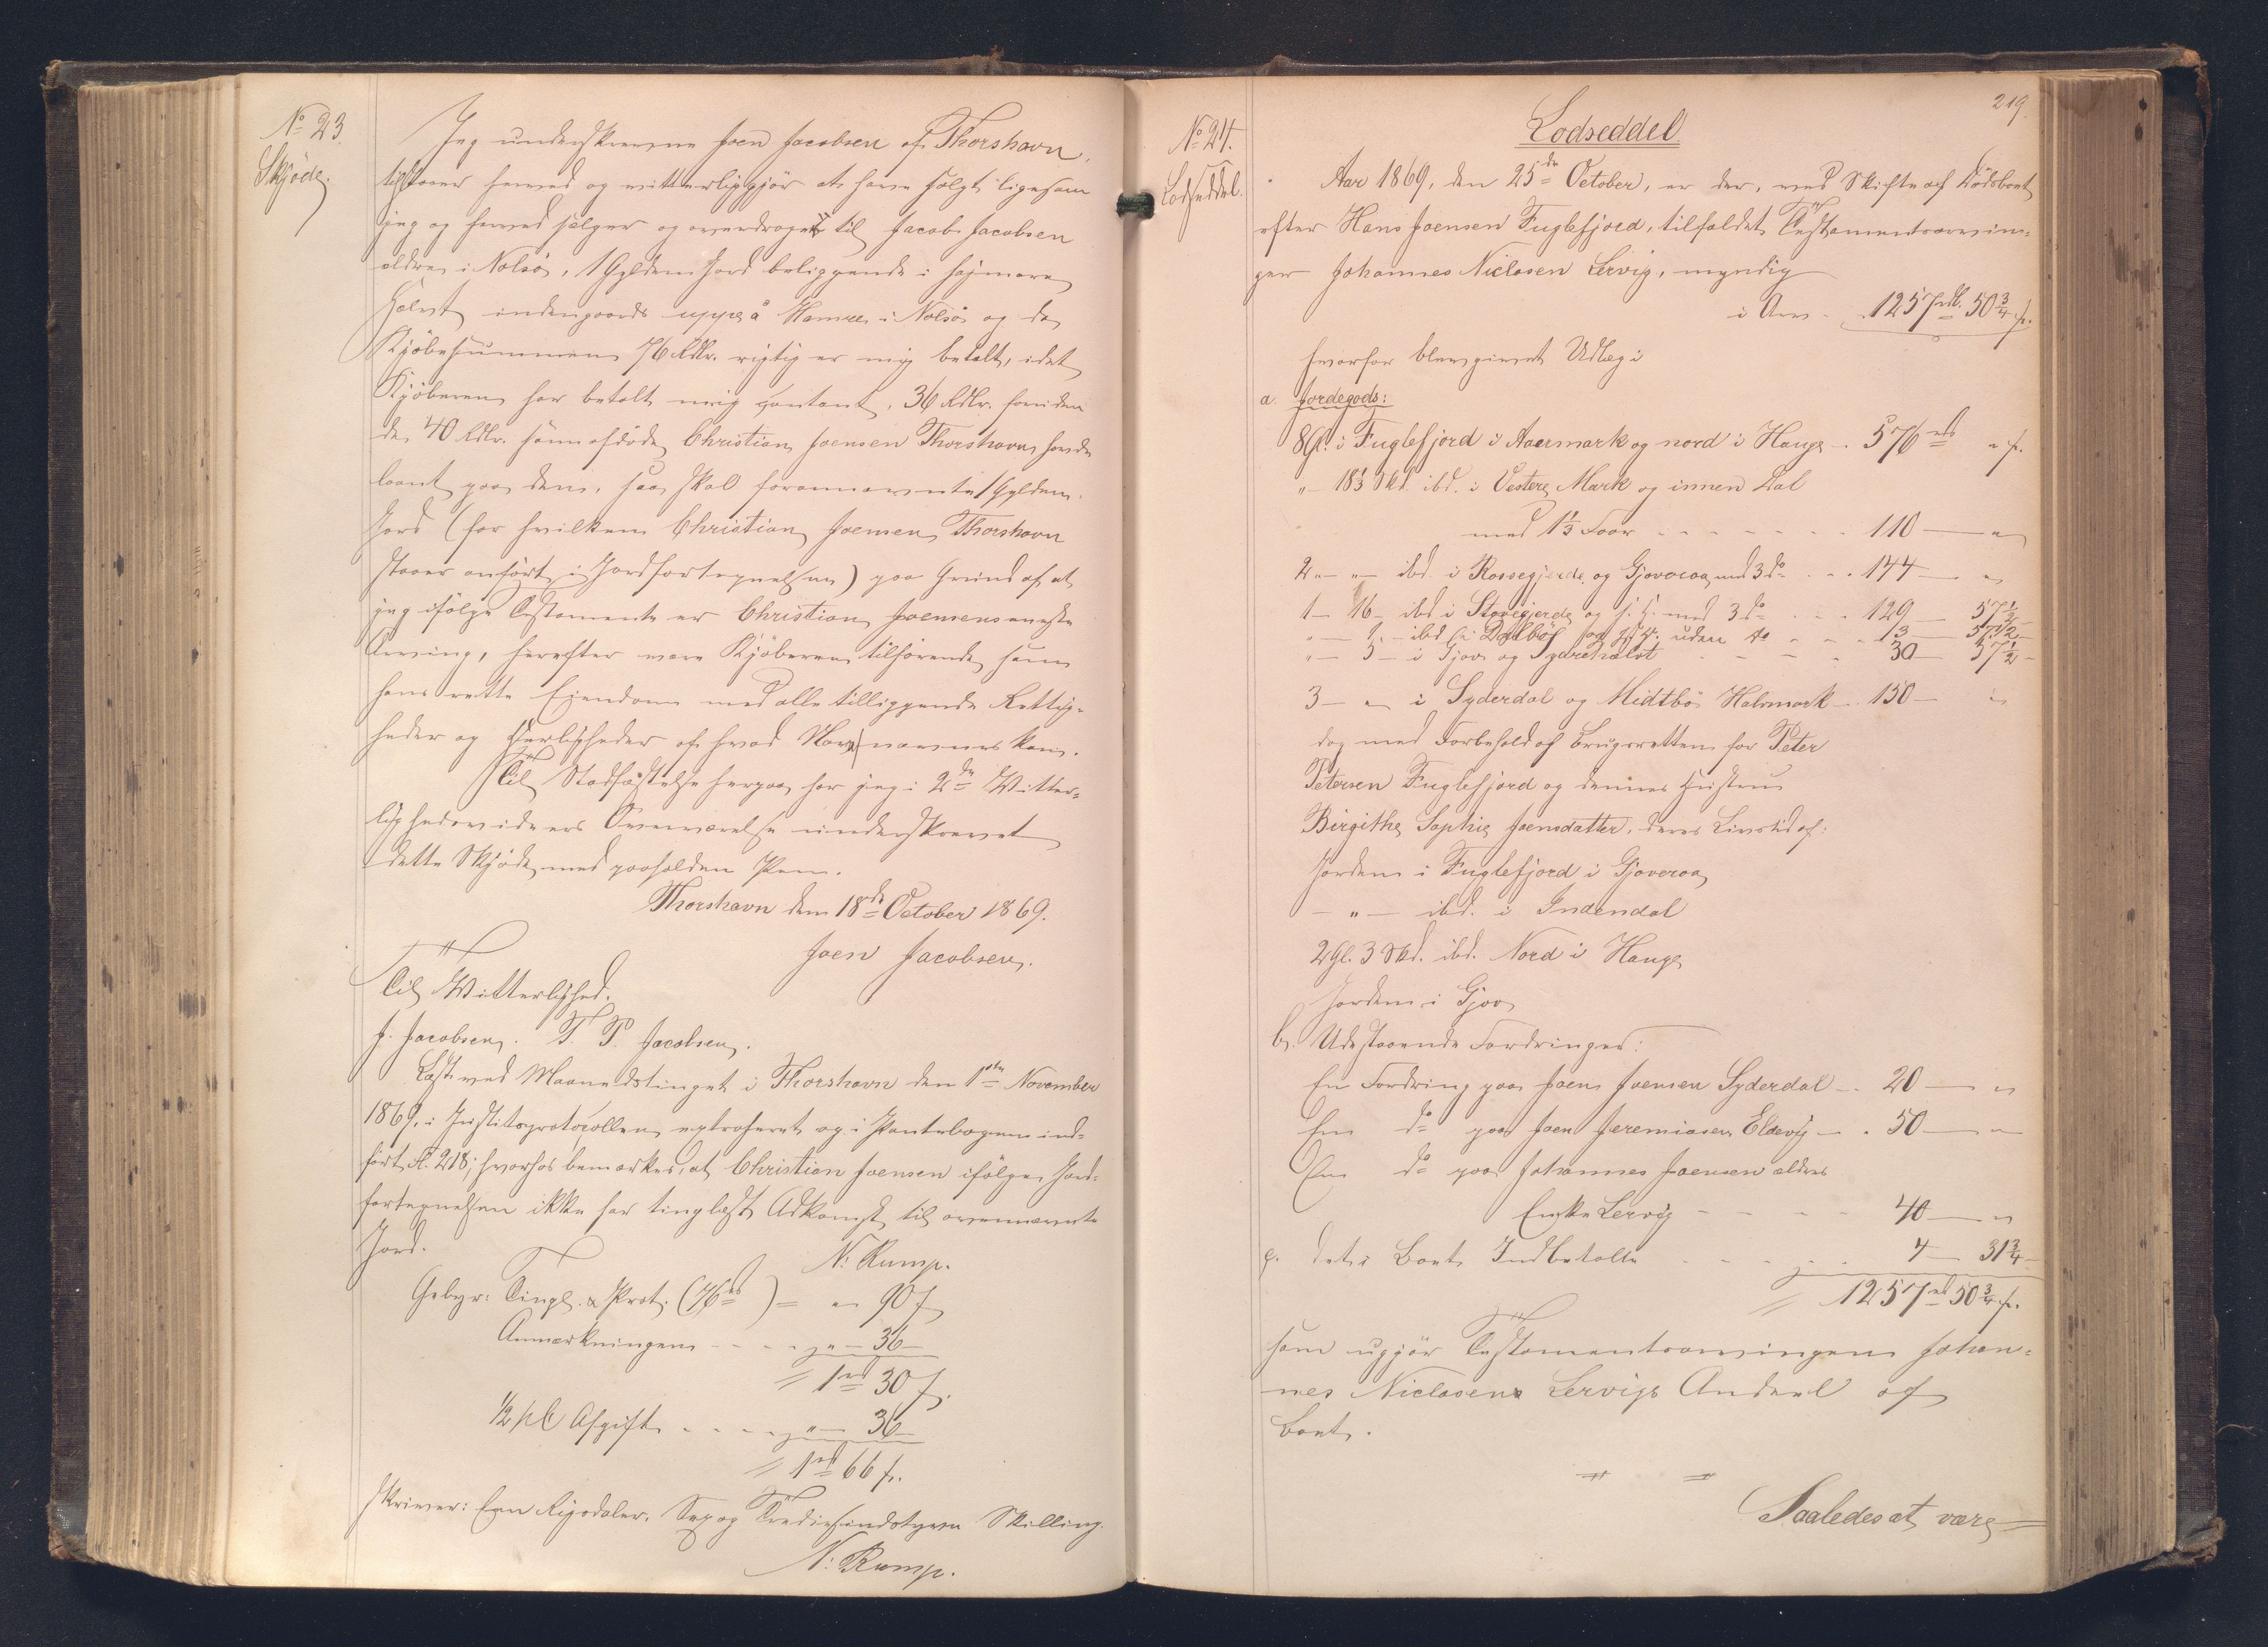 No 23.
Skjøde.
Jeg underskrevne Joen Jacobsen af Thorshavn,
tilstaaer herved og vitterliggjør at have solgt ligesom
jeg og herved sælger og overdrager til Jacob Jacobsen
ældre i Nolsö, 1 Gylden Jord beliggende i hejmara
Halvt indengaards uppá Hamre i Nolsö og da
Kjöbesummen 76 Rdlr. rigtig er mig betalt, idet
Kjöberen har betalt mig contant, 36 Rdlr. foruden
de 40 Rdlr. som afdöde Christian Joensen Thorshavn havde
laant paa den, saa skal forannævnte 1 Gylden
Jord (for hvilken Christian Joensen Thorshavn
staaer anfört i Jordfortegnelsen) paa Grund af at
jeg ifölge Testamente er Christian Joensens eneste
Arving, herefter være Kjöberen tilhörende som
hans rette Eiendom med alle tilliggende Rettig-
heder og Herligheder af hvad Navn nævnes kan.
Til Stadfæstelse herpaa har jeg i 2de Vitter-
lighedsvidners Overværelse underskrevet
dette Skjöde med paaholden Pen.
Thorshavn den 18de October 1869.
Joen Jacobsen.
Til Vitterlighed.
J. Jacobsen. T. P. Jacobsen.
Læst ved Maanedstinget i Thorshavn den 1ste November
1869, i Justitsprotocollen extraheret og i Pantebogen ind-
fört fl. 218; hvorhos bemærkes, at Christian Joensen ifölge Jord-
fortegnelsen ikke har tinglæst Adkomst til ovennævnte
Jord.
N. Rump.
Gebyr: Tingl. & Prot. (76 rd) = " 90 ſ
Anmærkningen - - - - " — 36 —
= 1 rd 30 ſ.
1/2 pC Afgift - - - - " — 36 —
= 1 rd 66 ſ.
skriver: Een Rigsdaler, Sex og Trediesindstyve Skilling.
N. Rump.
219.
No 24.
Lodseddel.
Lodseddel
Aar 1869, den 25de October, er der, ved Skifte af Dödsboet
efter Hans Joensen Fuglefjord, tilfaldet Testamentsarvin-
gen Johannes Niclasen Lervig, myndig
i Arv - 1257 rdl. 50 3/4 ſ.
hvorfor blev givet Udlæg i
a. Jordegods:
8 Gl. i Fuglefjord i Aaermark og nord i Hauge - 576 rd " ſ.
" — 18 1/3 Skd. ibd. i Vestere Mark og innen Dal
med 1 1/3 Foor - - - - - - 110 — "
2 — " — ibd. i Rossegjerde og Gjovoraa med 3 do - - 144 — "
1 — 16 — ibd i Stovegjerde og med 3 do - - 129 — 57 1/2 —
" — — ibd i Dalböf uden do - - - 13 — 57 1/2 —
" — 5 — i Gjov og Sydrehalvt - - - 30 — 57 1/2 —
3 — " — i Syderdal og Midtbö Halvmark - 150 — "
dog med Forbehold af Brugsretten for Peter
Petersen Fuglefjord og dennes Hustru
Birgithe Sophie Joensdatter, deres Livstid af:
Jorden i Fuglefjord i Gjoveraa
— " — ibd. i Indendal
2 Gl. 3 Skd. ibd. Nord i Hauge
Jorden i Gjov
b. Udestaaende Fordringer:
En Fordring paa Joen Joensen Syderdal - - 20 — "
En do paa Joen Jeremiasen Eldevig - - 50 — "
En do paa Johannes Joensen ældres
Enke Lervig - - - - 40 — "
c. det i Boet Indbetalte - - - 4 — 31 3/4 —
= 1257 rd 50 3/4 ſ.
som udgjör Testamentsarvingen Johan-
nes Niclasens Lervigs Andeel af
Boet.
Saaledes at være